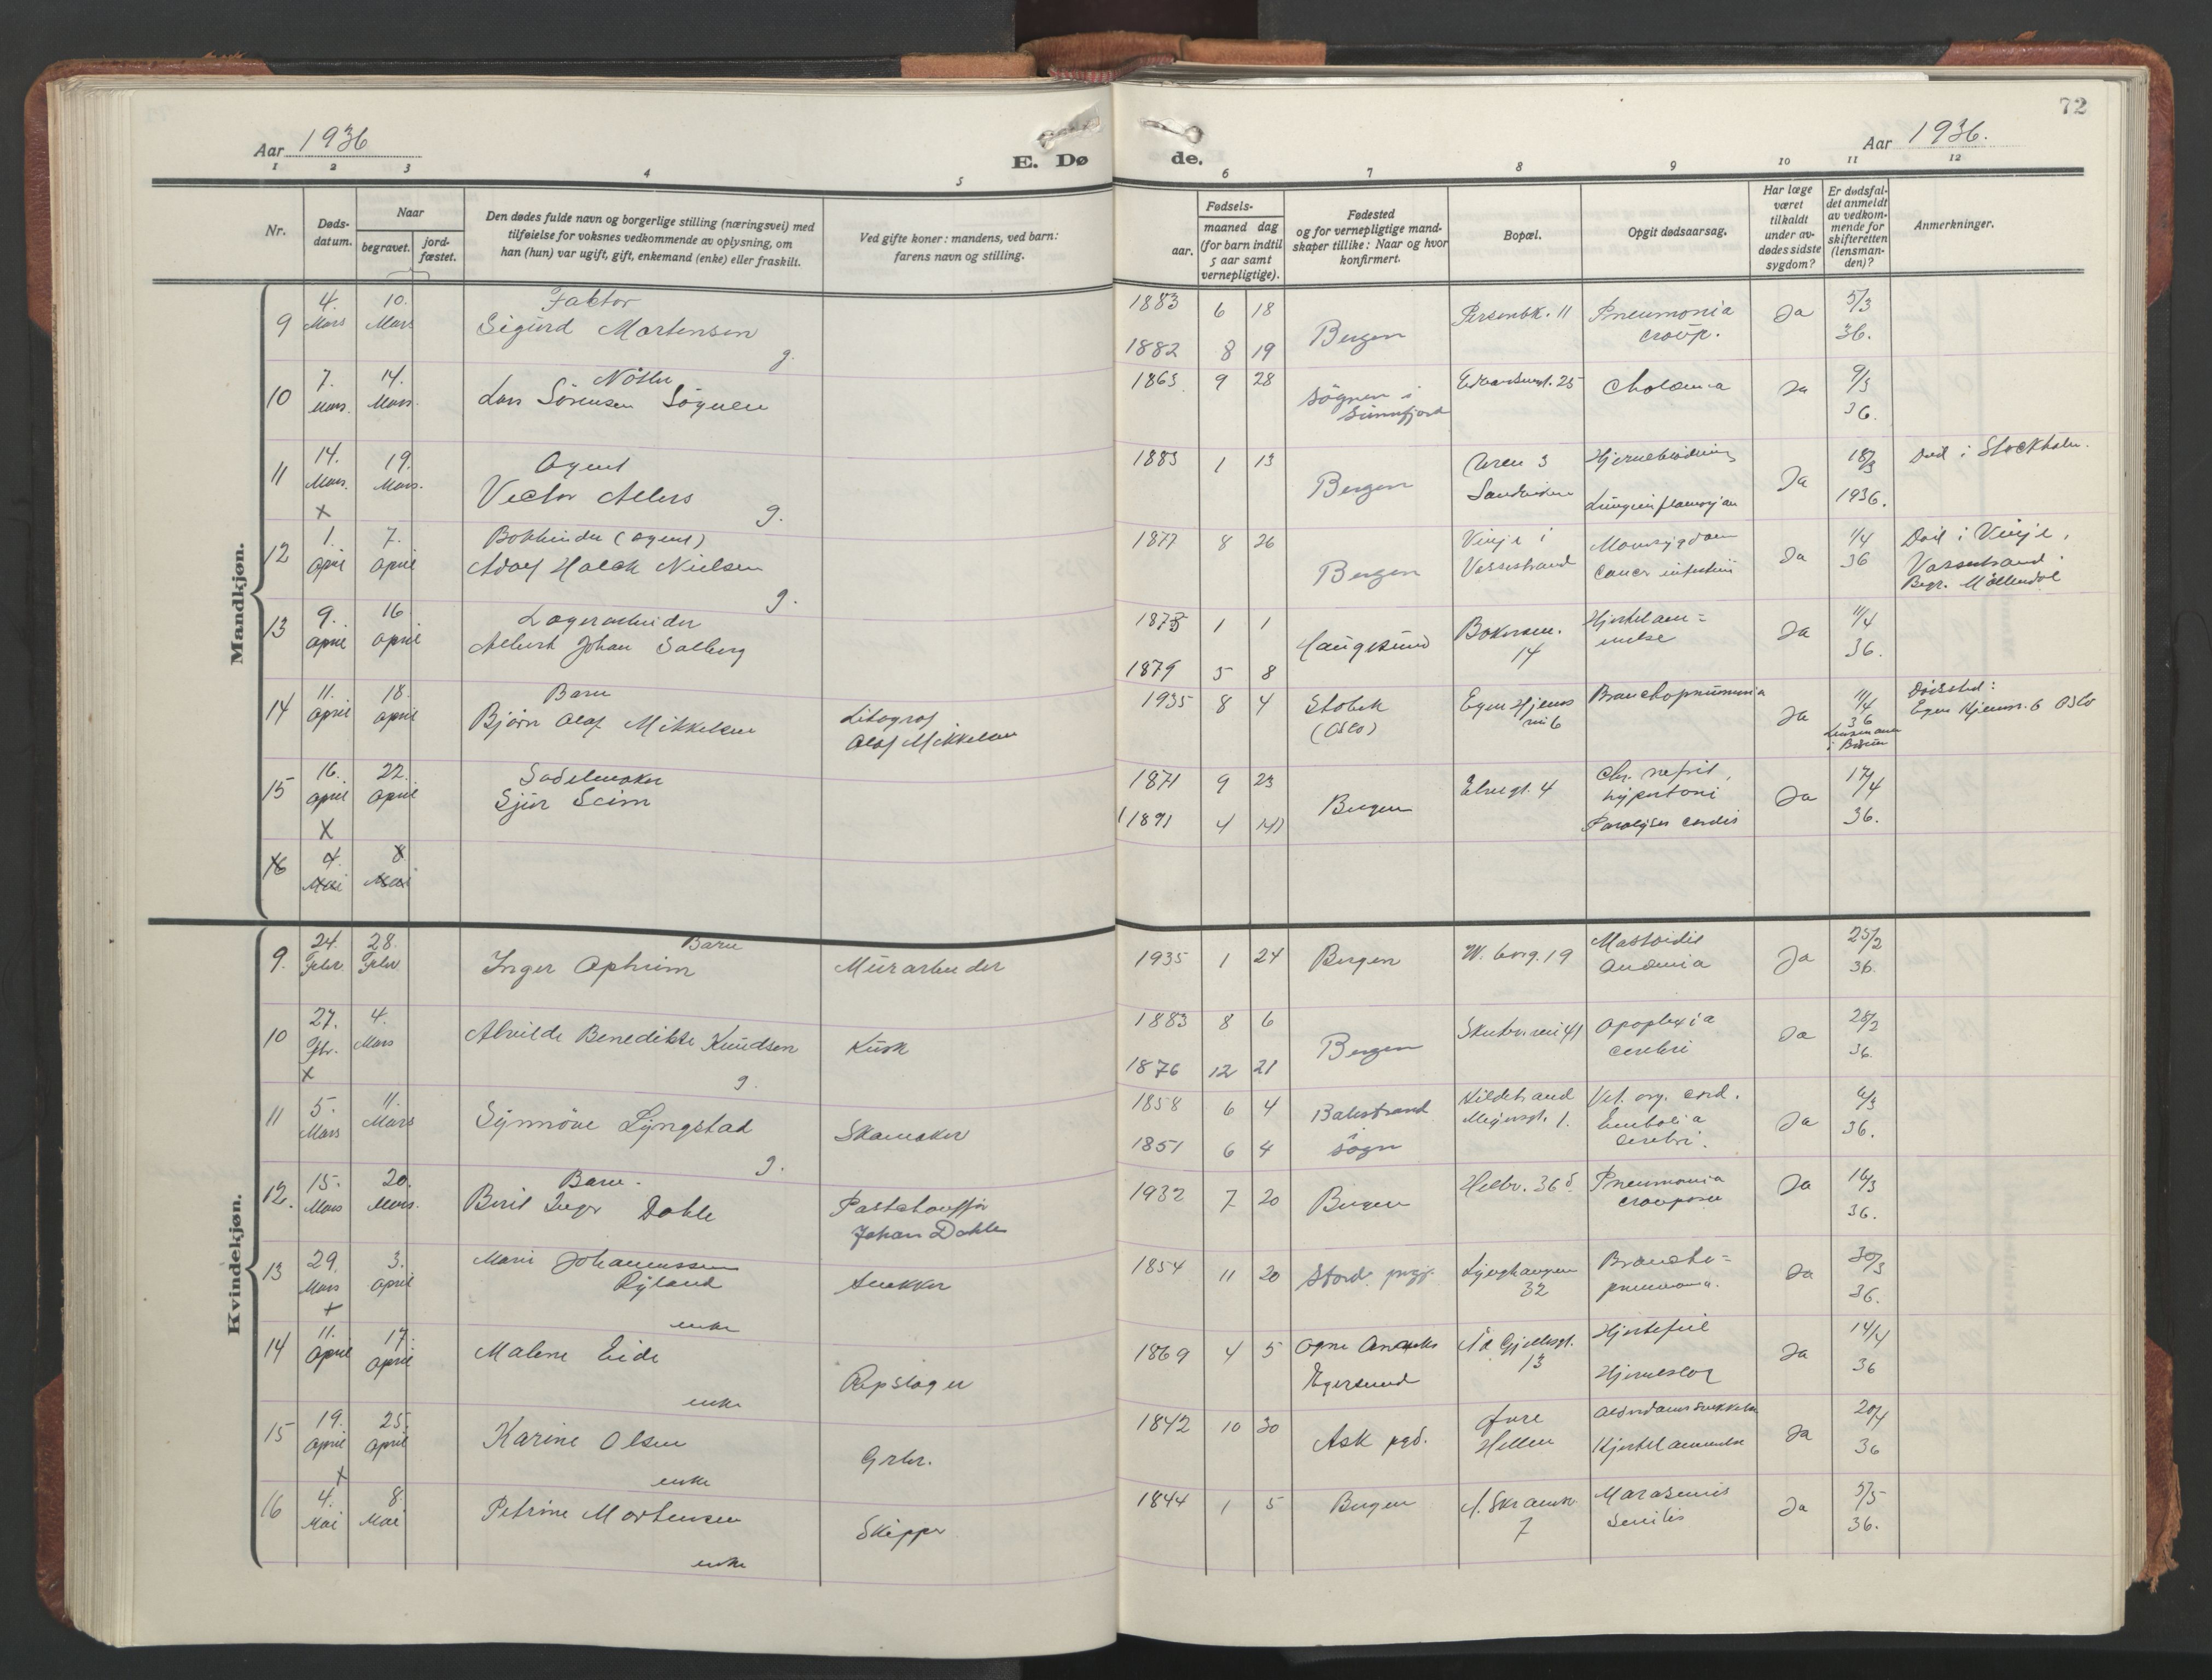 72
Aar 1936
E. Dø
de.
Aar 1936.
1 2 3 4 5 6 7 8 9 10 11 12
Nr.
Døds-
datum.
Naar
begravet.
jord-
fæstet.
Den dødes fulde navn og borgerlige stilling (næringsvei) med
tilføielse for voksnes vedkommende av oplysning, om
han (hun) var ugift, gift, enkemand (enke) eller fraskilt.
Ved gifte koner: mandens, ved barn:
farens navn og stilling.
Fødsels-
aar.
maaned dag
(for barn indtil
5 aar samt
vernepligtige).
Fødested
og for vernepligtige mand-
skaper tillike: Naar og hvor
konfirmert.
Bopæl.
Opgit dødsaarsag.
Har læge
været
tilkaldt
under av-
dødes sidste
sygdom?
Er dødsfal-
det anmeldt
av vedkom-
mende for
skifteretten
(lensman-
den)?
Anmerkninger.
Mandkjøn.
9 4. Mars 10. Mars
Faktor
Sigurd Mortensen
g.
1883 6 18
1882 8 19
Bergen
11
Pneumonia
croup.
Ja
5/3
36.
10 7. Mars. 14. Mars.
Lars Sörensen Sögnen
1863 9 28
Sögnen i
Sünnfjord
25
Ja
9/3
36.
11 14. Mars. 19. Mars.
x
Agent
Victor Ahlers
g.
1883 1 13
Bergen
3
Sandviken
Hjerneblödning
Ja
18/3
1936.
Död i Stockholm.
12 1. April 7. April
Bokbinder (Agent)
Adolf Halck Nielsen
g.
1877 8 26
Bergen
Vinje i
Vossestrand
Mavesygdom
Cancer intestini
Ja
1/4
36
Död i Vinje,
Vossestrand
Begr. Möllendal
13 9. April 16 April
Lagerarbeider
Albert Johan Solberg
1875 1 1
1879 5 8
Haugesund
14
Hjertelam=
melse
Ja
11/4
36.
14 11. April 18. April
Barn
Bjørn Olaf Mikkelsen
Litograf
Olaf Mikkelsen
1935 8 4
Stabek
(Oslo)
Egne Hjems
vei 6
Bronchopneumonia
Ja
11/4
36
Lensmannen
i Bærum
Dödssted:
Egne Hjemsv. 6 Oslo
15 16. April 22. April
X
Sadelmaker
Sjur Seim
1871 9 23
(1891 4 14)
Bergen
Elvegt. 4
Chr. nefrit,
hypertoni
Paralyses cordis
Ja
17/4
36.
16 4. Mai 8 Mai
Kvindekjøn.
9. 24. Febr. 28. Febr.
Barn
Inger Ophrim
Mürarbeider
1935 1 24
Bergen
W. borg. 19
Mastoidis
Anæmia
Ja
25/2
36.
10 27. Fbr. 4. Mars
x
Alvilde Benedikte Knüdsen
g.
Küsk
1883 8 6
1876 12 21
Bergen
Skuteviksvei 41
Apoplexia
cerebri
Ja
28/2
36.
11 5. Mars 11. Mars
Synnöve Lyngstad
g.
Skomaker
1858 6 4
1851 6 4
Balestrand
Sogn
Meyersgt. 1.
Vit. org. cord.
Embolia
Cerebri.
Ja
6/3
36.
12. 15. Mars 20. Mars.
Barn.
Berit Inger Dahle
Postchauffør
Johan Dahle
1932 7 20
Bergen
Pneumonia
crouposa
Ja
16/3
36.
13 29. Mars 3. April
+
Marie Johannessen
Ryland
enke
Snekker
1854 11 20
Stord. prgj.
Lynghaugen
32
Broncho=
pneumonia.
Ja
30/3
36.
14 11. April 17. April
Malene Eide
enke
Repslager
1869 4 5
Ogne
Egersund
13
Hjertefeil
Hjerneslag
Ja
14/4
36
15 19. April 25. April
x
Karine Olsen
enke
Grbr.
1842 10 30
Ask pgd.
Hellen
Alderdomssvekkelse
Hjertelammelse
Ja
20/4
36
16 4. Mai 8. Mai
Petrine Mortensen
enke
Skipper
1844 1 5
Bergen
7
Marasmus
Senilis
Ja
5/5
36.